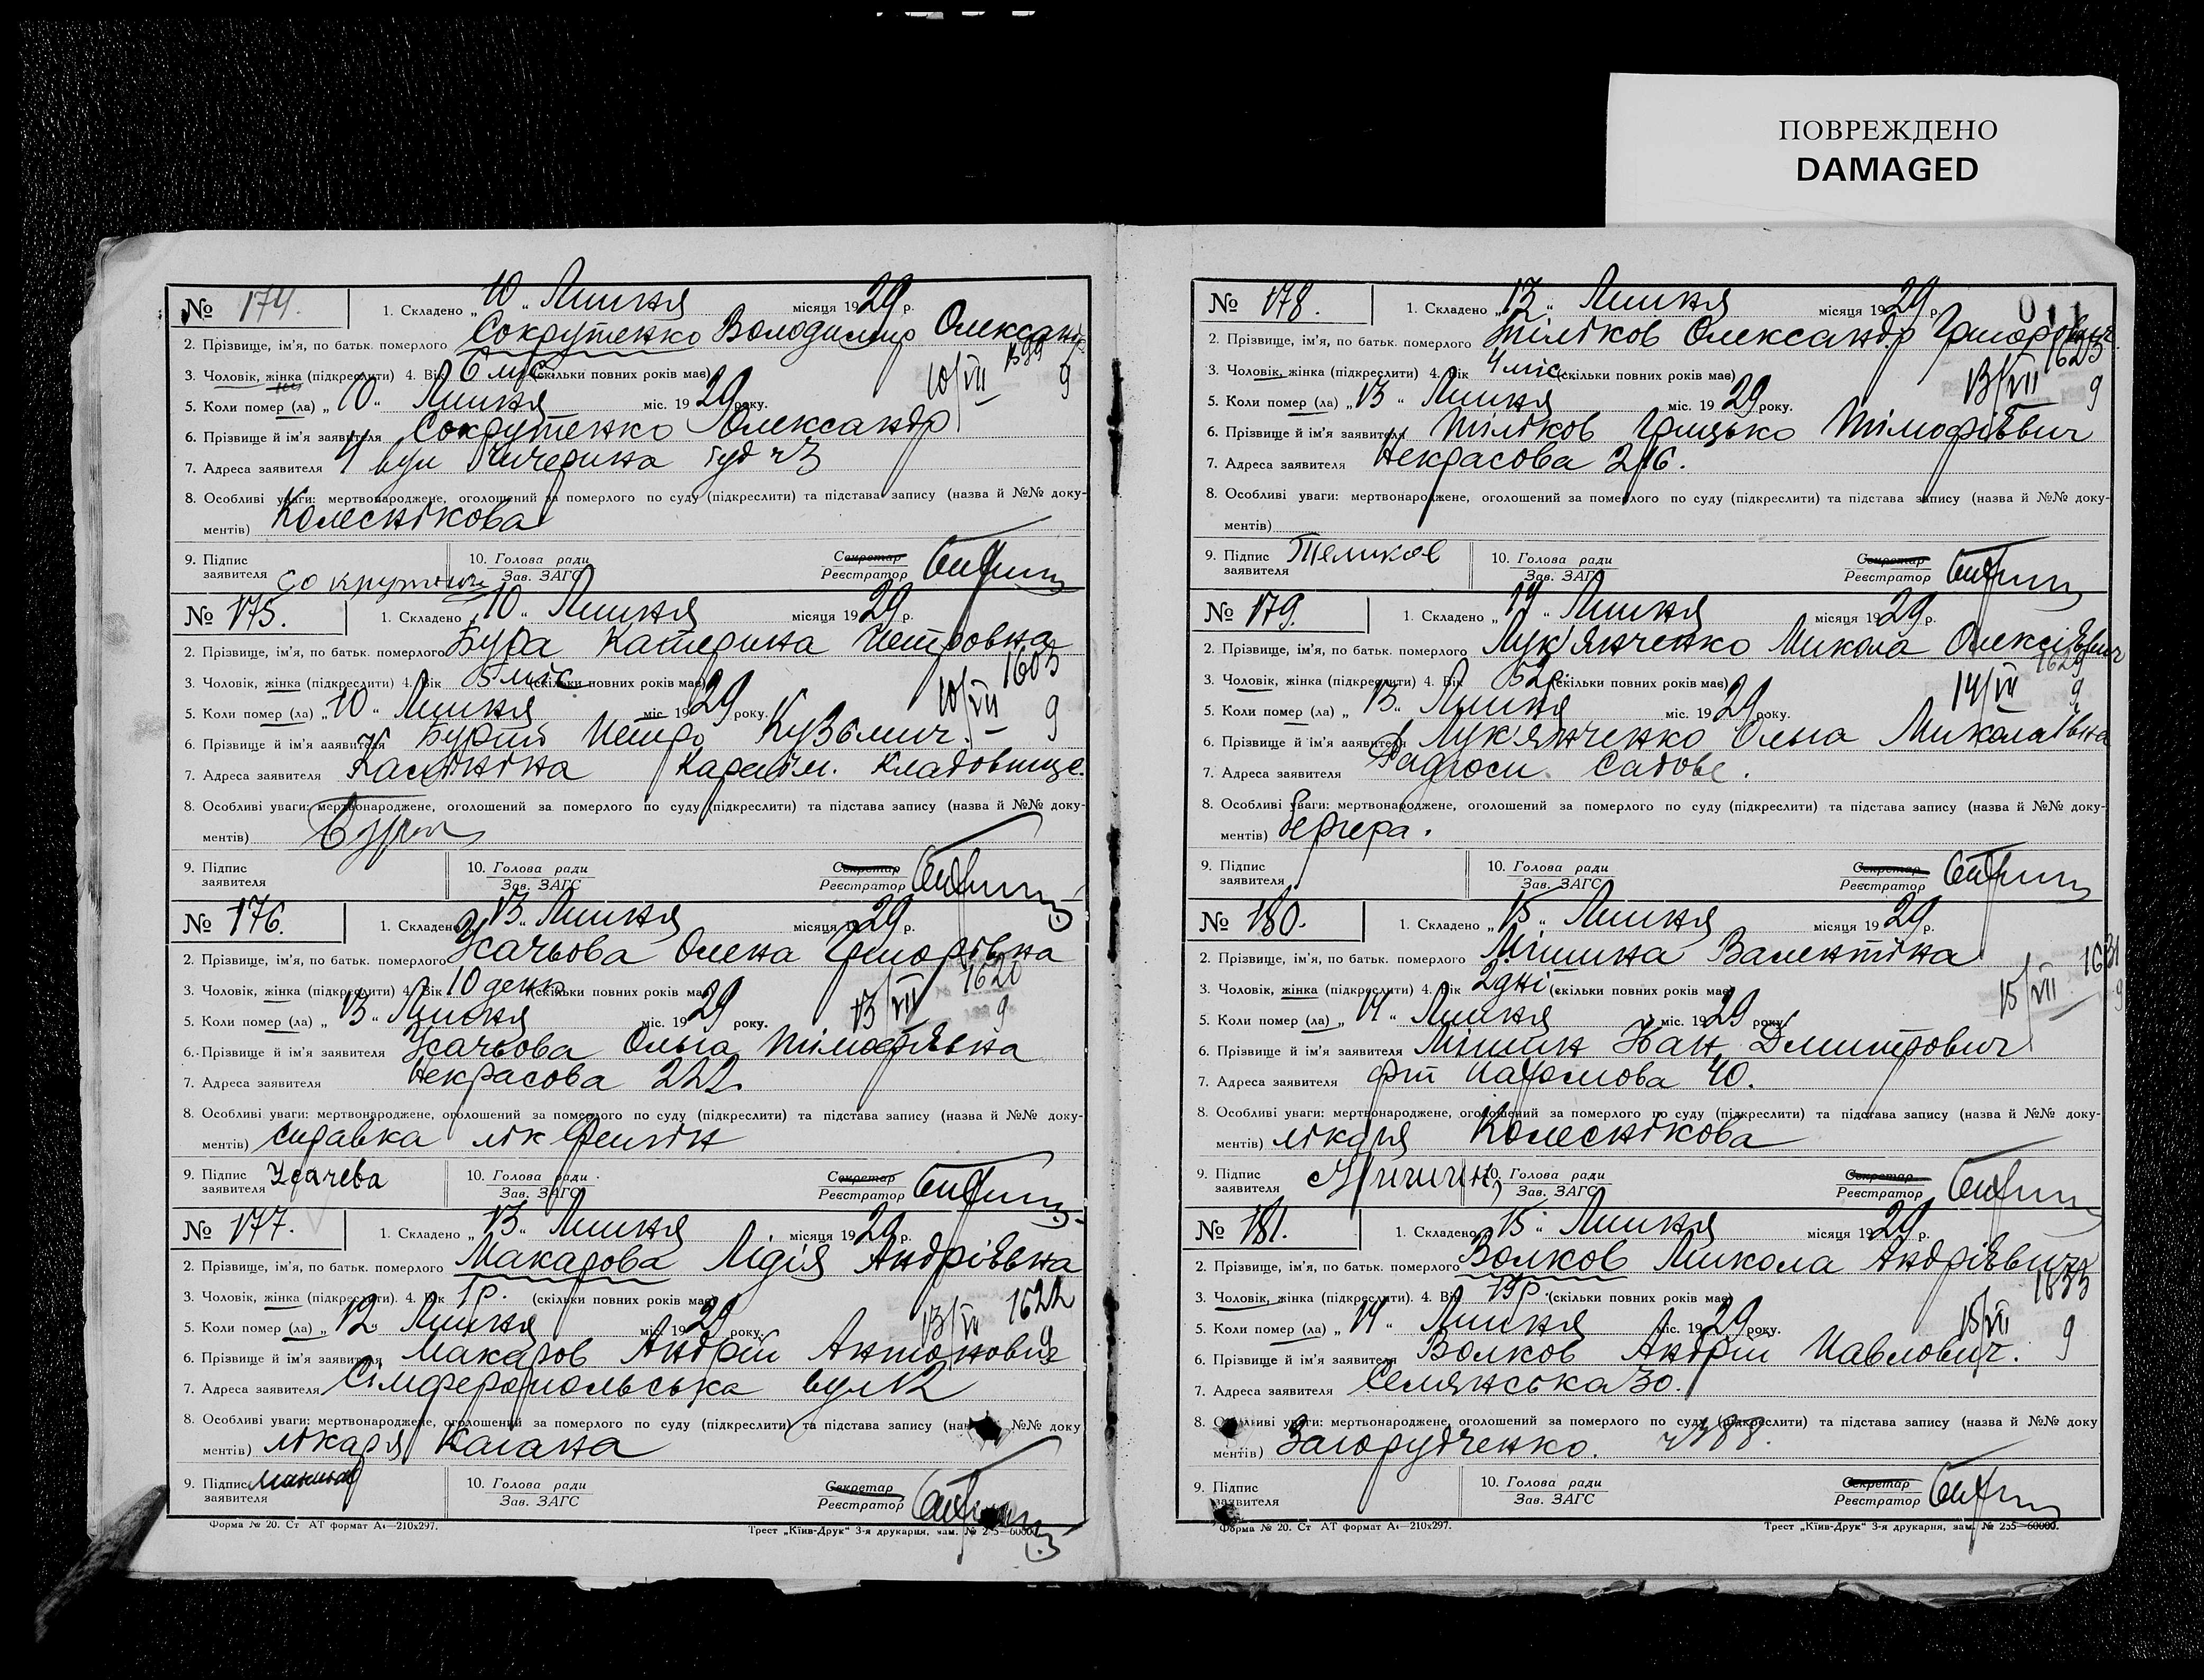 ПОВРЕЖДЕНО
DAMAGED
№ 174. 1. Складено „10“ Липня місяця 1929 р.
2. Прізвище, ім'я, по батьк. померлого Сокрутенко Володимир Олександр
3. Чоловік, жінка (підкреслити) 4. Вік 6 міс. (скільки повних років має)
10/VII 9
5. Коли помер (ла) „10“ Липня міс. 1929 року.
6. Прізвище й ім'я заявителя Сокрутенко Олександр
7. Адреса заявителя 4 вул Чичерина буд ч 3
8. Особливі уваги: мертвонароджене, оголошений за померлого по суду (підкреслити) та підстава запису (назва й №№ доку-
ментів) Колеснікова
9. Підпис заявителя 10. Голова ради Зав. ЗАГС Секретар Реєстратор
№ 175. 1. Складено „10“ Липня місяця 1929 р.
2. Прізвище, ім'я, по батьк. померлого Катерина Петровна
3. Чоловік, жінка (підкреслити) 4. Вік 5 міс (скільки повних років має)
10/VII 1603 9
5. Коли помер (ла) „10“ Липня міс. 1929 року.
6. Прізвище й ім'я заявителя Петро Кузьмич.
7. Адреса заявителя Калініна Караїм. кладовище.
8. Особливі уваги: мертвонароджене, оголошений за померлого по суду (підкреслити) та підстава запису (назва й №№ доку-
ментів)
9. Підпис заявителя 10. Голова ради Зав. ЗАГС Секретар Реєстратор
№ 176. 1. Складено „13“ Липня місяця 1929 р.
2. Прізвище, ім'я, по батьк. померлого Усачьова Олена Григорівна
3. Чоловік, жінка (підкреслити) 4. Вік 10 день (скільки повних років має)
13/VII 1620 9
5. Коли помер (ла) „13“ Липня міс. 1929 року.
6. Прізвище й ім'я заявителя Усачьова Ольга Тімофіївна
7. Адреса заявителя Некрасова 222.
8. Особливі уваги: мертвонароджене, оголошений за померлого по суду (підкреслити) та підстава запису (назва й №№ доку-
ментів) справка лік
9. Підпис заявителя Усачева 10. Голова ради Зав. ЗАГС Секретар Реєстратор
№ 177. 1. Складено „13“ Липня місяця 1929 р.
2. Прізвище, ім'я, по батьк. померлого Макарова Лідія Андріївна
3. Чоловік, жінка (підкреслити). 4. Вік 1 р. (скільки повних років має)
13/VII 1622 9
5. Коли помер (ла) „12“ Липня міс. 1929 року.
6. Прізвище й ім'я заявителя Макаров Андрій Антонович
7. Адреса заявителя Сімферопольська вул 12
8. Особливі уваги: мертвонароджене, оголошений за померлого по суду (підкреслити) та підстава запису №№ доку
ментів) лікаря Кагана
9. Підпис заявителя 10. Голова ради Зав. ЗАГС Секретар Реєстратор
Форма № 20. Ст АТ формат А4—210х297. Трест „Київ-Друк“ 3-я друкарня, зам. № 255—60000.
№ 178. 1. Складено „13“ Липня місяця 1929 р.
2. Прізвище, ім'я, по батьк. померлого Тіліков Олександр Григорович
3. Чоловік, жінка (підкреслити) 4. Вік 4 міс. (скільки повних років має)
13/VII 1623 9
5. Коли помер (ла) „13“ Липня міс. 1929 року.
6. Прізвище й ім'я заявителя Тіліков Грицько Тімофіївич
7. Адреса заявителя Некрасова 216.
8. Особливі уваги: мертвонароджене, оголошений за померлого по суду (підкреслити) та підстава запису (назва й №№ доку-
ментів)
9. Підпис заявителя Теликов 10. Голова ради Зав. ЗАГС Секретар Реєстратор
№ 179. 1. Складено „14“ Липня місяця 1929 р.
2. Прізвище, ім'я, по батьк. померлого Лук'янченко Микола Олексіївич
3. Чоловік, жінка (підкреслити) 4. Вік (скільки повних років має)
14/VII 1629 9
5. Коли помер (ла) „13“ Липня міс. 1929 року.
6. Прізвище й ім'я заявителя Лук'янченко Ольга Миколаївна
7. Адреса заявителя Садове.
8. Особливі уваги: мертвонароджене, оголошений за померлого по суду (підкреслити) та підстава запису (назва й №№ доку-
ментів) бергера.
9. Підпис заявителя 10. Голова ради Зав. ЗАГС Секретар Реєстратор
№ 180. 1. Складено „15“ Липня місяця 1929 р.
2. Прізвище, ім'я, по батьк. померлого Мішина Валентіна
3. Чоловік, жінка (підкреслити) 4. Вік 2 дні (скільки повних років має)
15/VII 1631 9
5. Коли помер (ла) „14“ Липня міс. 1929 року.
6. Прізвище й ім'я заявителя Мішин Іван Дмитрович
7. Адреса заявителя 40.
8. Особливі уваги: мертвонароджене, оголошений за померлого по суду (підкреслити) та підстава запису (назва й №№ доку-
ментів) лікаря Колеснікова
9. Підпис заявителя 10. Голова ради Зав. ЗАГС Секретар Реєстратор
№ 181. 1. Складено „15“ Липня місяця 1929 р.
2. Прізвище, ім'я, по батьк. померлого Волков Микола Андріївич
3. Чоловік, жінка (підкреслити). 4. Вік (скільки повних років має)
15/VII 1633 9
5. Коли помер (ла) „14“ Липня міс. 1929 року.
6. Прізвище й ім'я заявителя Волков Андрій Павлович.
7. Адреса заявителя Селянська 30.
8. Особливі уваги: мертвонароджене, оголошений за померлого по суду (підкреслити) та підстава запису (назва й №№ доку
ментів) Загорудченко.
9. Підпис заявителя 10. Голова ради Зав. ЗАГС Секретар Реєстратор
Форма № 20. Ст АТ формат А4—210х297. Трест „Київ-Друк“ 3-я друкарня, зам. № 255—60000.